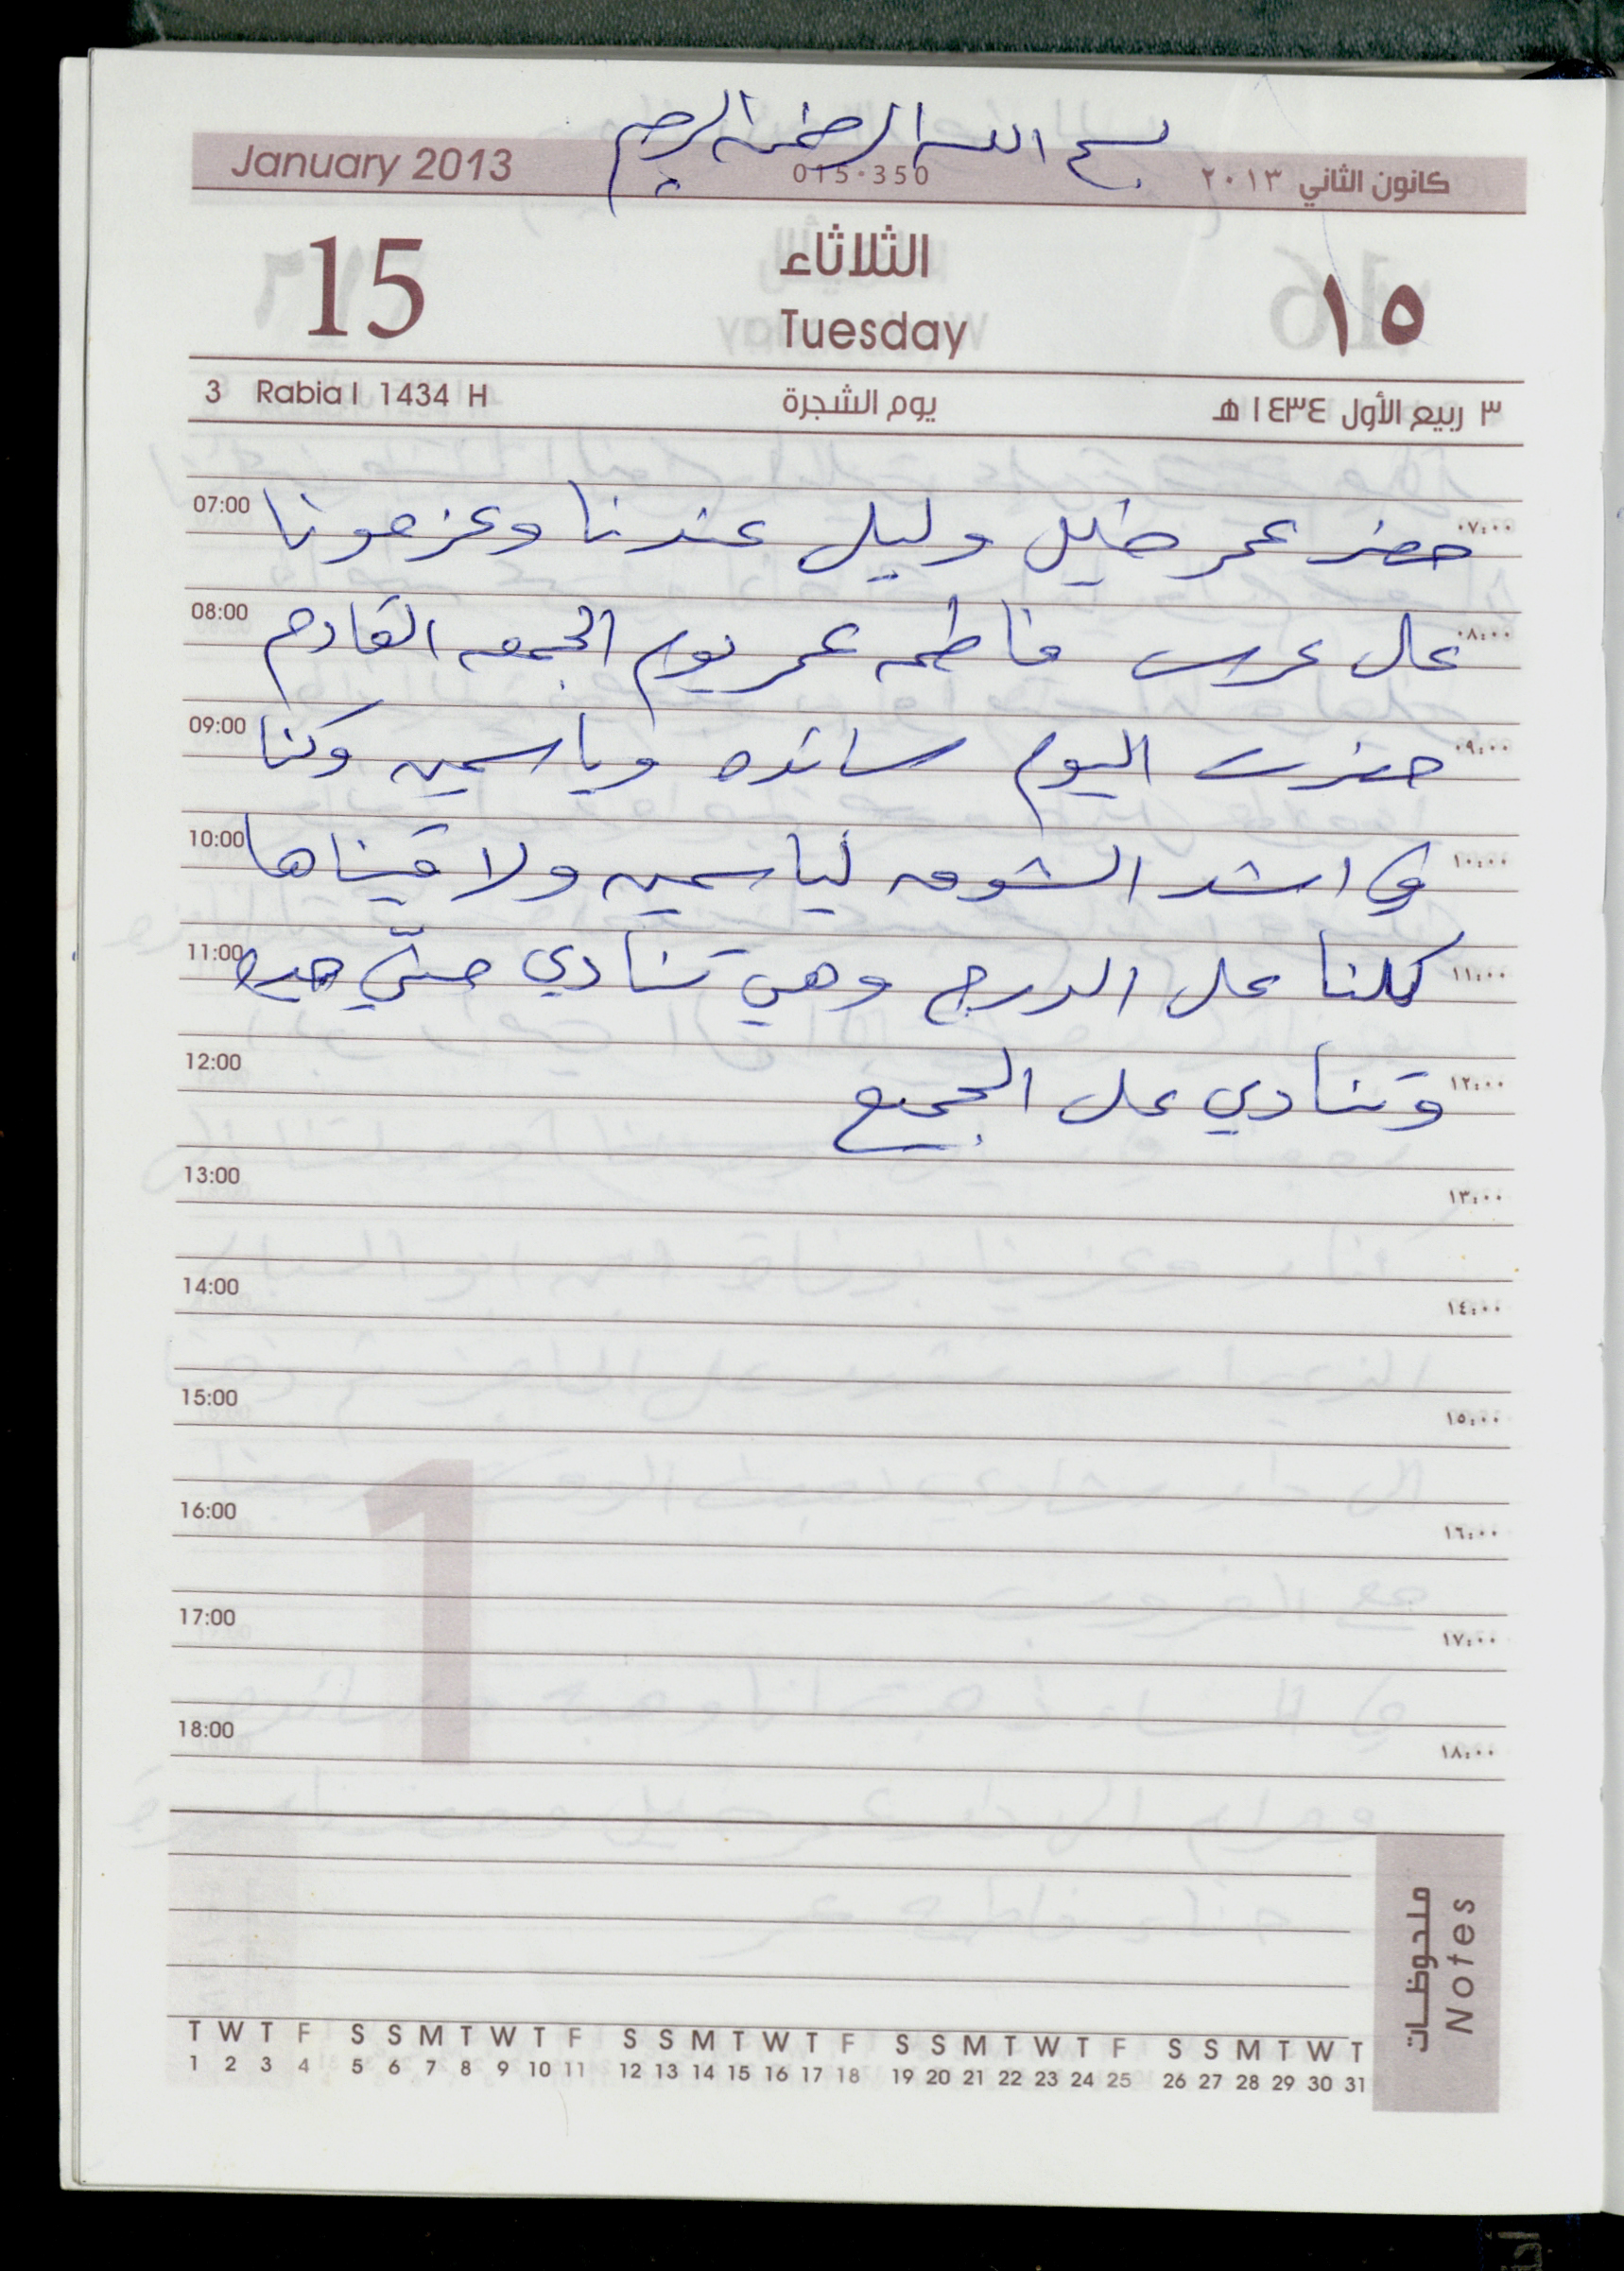 بسم الله الرحمن الرحيم
January 2013 015·350 كانون الثاني ٢٠١٣
15 الثلاثاء ١٥
Tuesday
3 Rabia I 1434 H يوم الشجرة ٣ ربيع الأول ١٤٣٤ هـ
07:00 حضر عمر خليل وليل عندنا وعزمونا ٠٧:٠٠
08:00 عل عرس فاطمه عمر يوم الجمعه القادم ٠٨:٠٠
09:00 حضرت اليوم سائده وياسمين وكنا ٠٩:٠٠
10:00 في اشد الشوق لياسمين ولاقيناها ١٠:٠٠
11:00 كلنا عل الدرج وهي تنادي ١١:٠٠
12:00 وتنادي عل الجميع ١٢:٠٠
13:00 ١٣:٠٠
14:00 ١٤:٠٠
15:00 ١٥:٠٠
16:00 ١٦:٠٠
17:00 ١٧:٠٠
18:00 ١٨:٠٠
1
ملحوظات
Notes
T W T F S S M T W T F S S M T W T F S S M T W T F S S M T W T
1 2 3 4 5 6 7 8 9 10 11 12 13 14 15 16 17 18 19 20 21 22 23 24 25 26 27 28 29 30 31